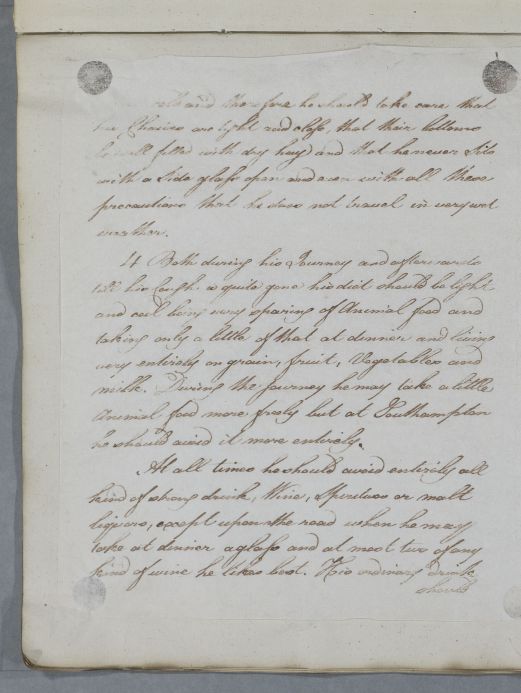 cold and therefore he should take care that
the Chaises are tight and close, that their bottoms
be well filled with dry hay and that he never Sits
with a Side glass open and even with all these
precautions that he does not travel in very wet
weather.
4 Both during his Journey and afterwards
till his Cough is quite gone his diet should be light
and cool being very sparing of Animal food and
taking only a little of that at dinner and living
very entirely on grain, fruit, Vegetables and
milk. During the Journey he may take a little
Animal food more freely but at Southampton
he should avoid it more entirely.
At all times he should avoid entirely all
kind of strong drink, Wine, Spirits or malt
liquors, except upon the road when he may
take at dinner a glass and at most two of any
kind of wine he likes best. His ordinary drink
should